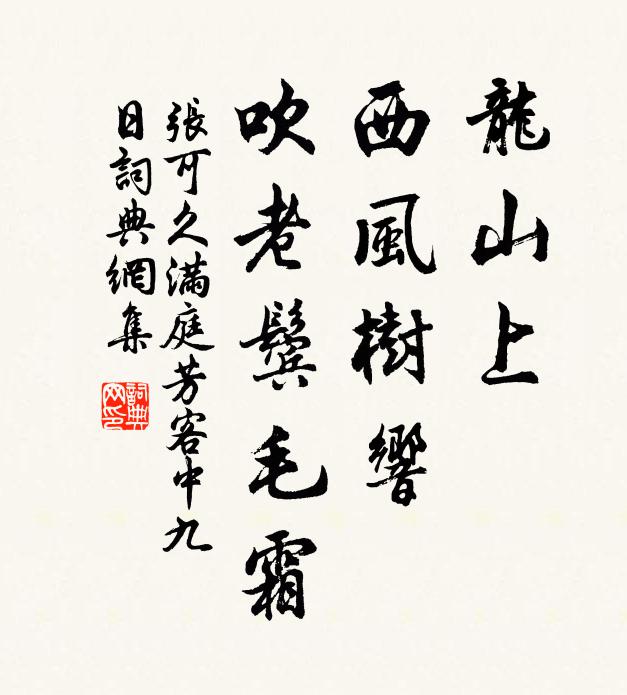 龍山上
西風樹響
吹老鬢毛霜
張可久滿庭芳客中九
日詞典網集
詞典網印